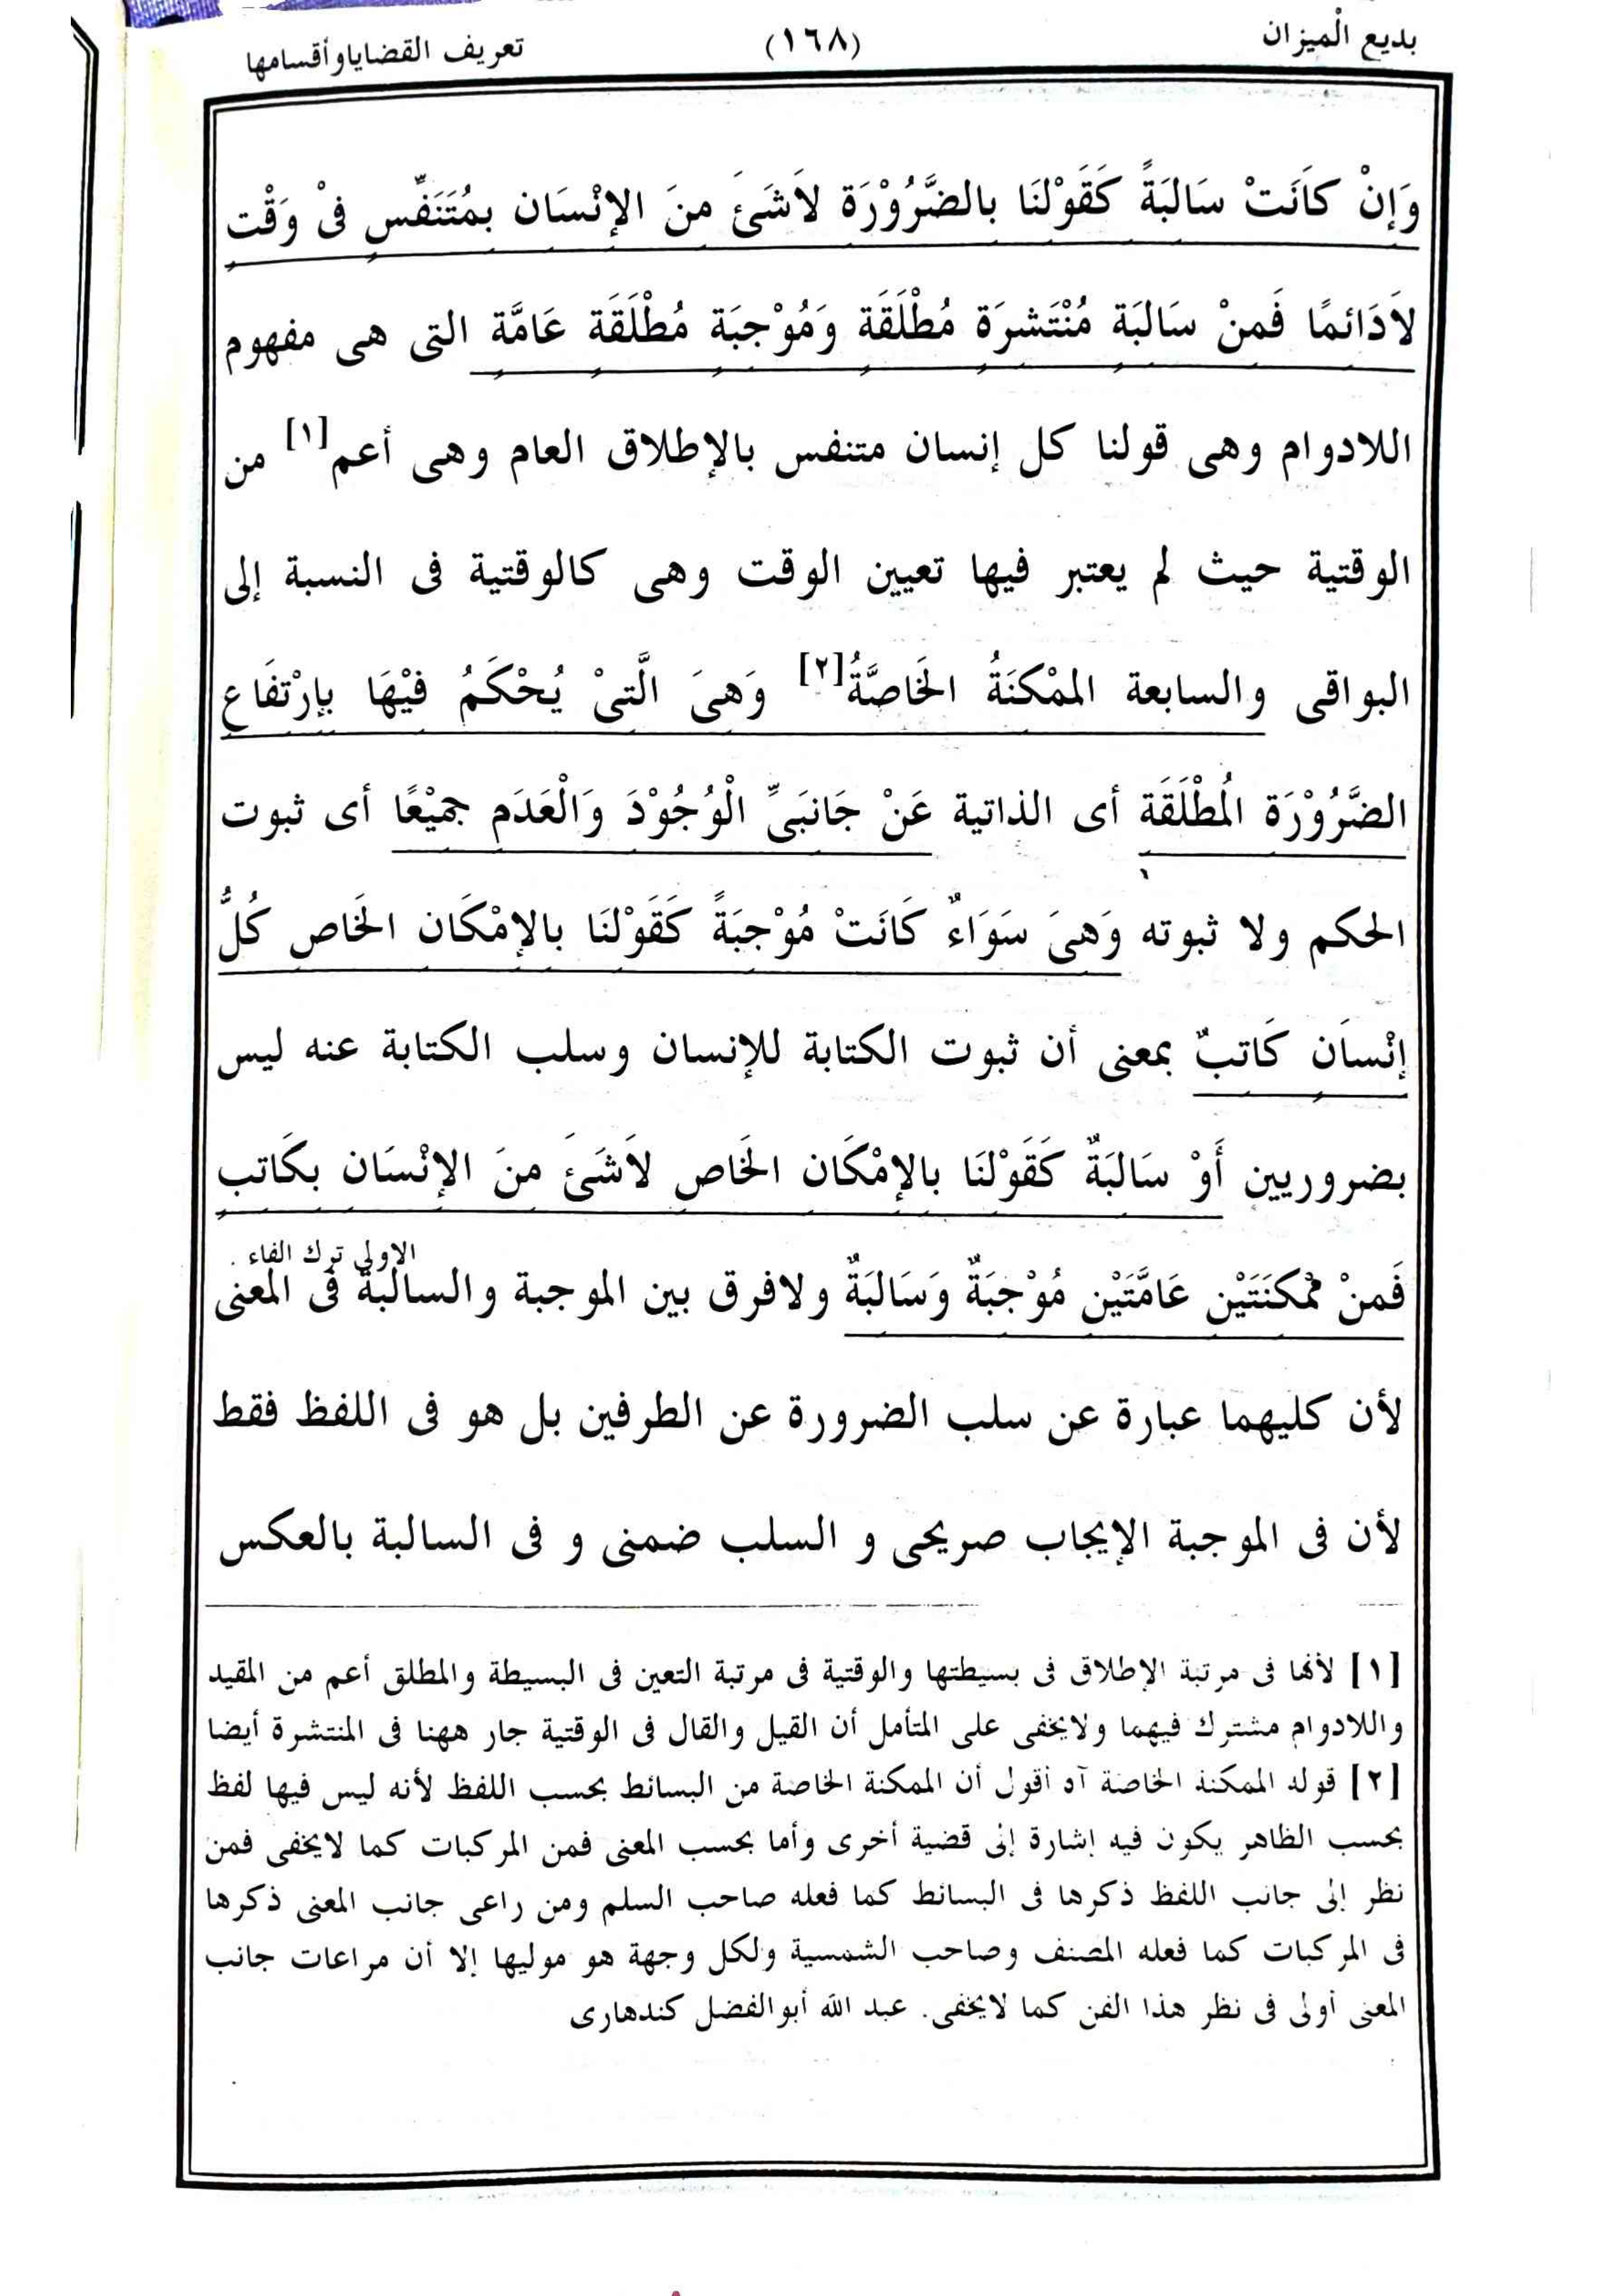 بديع الْميزان
(١٦٨)
تعريف القضايا وأقسامها
وَإِنْ كَانَتْ سَالِبَةً كَقَوْلِنَا بِالضَّرُوْرَةِ لاَشَئَ مِنَ الإِنْسَانِ بِمُتَنَفِّسٍ فِىْ وَقْتٍ
لاَدَائِمًا فَمِنْ سَالِبَةٍ مُنْتَشِرَةٍ مُطْلَقَةٍ وَمُوْجِبَةٍ مُطْلَقَةٍ عَامَّةٍ التى هى مفهوم
اللادوام وهى قولنا كل إنسان متنفس بالإطلاق العام وهى أعم[١] من
الوقتية حيث لم يعتبر فيها تعيين الوقت وهى كالوقتية فى النسبة إلى
البواقى والسابعة الممْكِنَةُ الخَاصَّةُ[٢] وَهِىَ الَّتِىْ يُحْكَمُ فِيْهَا بِإِرْتِفَاعِ
الضَّرُوْرَةِ الْمُطْلَقَةِ أى الذاتية عَنْ جَانِبَىِّ الْوُجُوْدِ وَالْعَدَمِ جَمِيْعًا أى ثبوت
الحكم ولا ثبوته وَهِىَ سَوَاءٌ كَانَتْ مُوْجِبَةً كَقَوْلِنَا بِالإِمْكَانِ الخَاصِ كُلُّ
إِنْسَانٍ كَاتِبٌ بمعنى أن ثبوت الكتابة للإنسان وسلب الكتابة عنه ليس
بضروريين أَوْ سَالِبَةٌ كَقَوْلِنَا بِالإِمْكَانِ الخَاصِ لاَشَئَ مِنَ الإِنْسَانِ بِكَاتِبٍ
الاولى ترك الفاء
فَمِنْ ممْكِنَتَيْنِ عَامَّتَيْنِ مُوْجِبَةٌ وَسَالِبَةٌ ولافرق بين الموجبة والسالبة فى المعنى
لأن كليهما عبارة عن سلب الضرورة عن الطرفين بل هو فى اللفظ فقط
لأن فى الموجبة الإيجاب صريحى و السلب ضمنى و فى السالبة بالعكس
[١] لأنها فى مرتبة الإطلاق فى بسيطتها والوقتية فى مرتبة التعين فى البسيطة والمطلق أعم من المقيد
واللادوام مشترك فيهما ولايخفى على المتأمل أن القيل والقال فى الوقتية جار ههنا فى المنتشرة أيضا
[٢] قوله الممكنة الخاصة آه أقول أن الممكنة الخاصة من البسائط بحسب اللفظ لأنه ليس فيها لفظ
بحسب الظاهر يكون فيه إشارة إلى قضية أخرى وأما بحسب المعنى فمن المركبات كما لايخفى فمن
نظر إلى جانب اللفظ ذكرها فى البسائط كما فعله صاحب السلم ومن راعى جانب المعنى ذكرها
فى المركبات كما فعله المصنف وصاحب الشمسية ولكل وجهة هو موليها إلا أن مراعات جانب
المعنى أولى فى نظر هذا الفن كما لايخفى. عبد الله أبوالفضل كندهارى